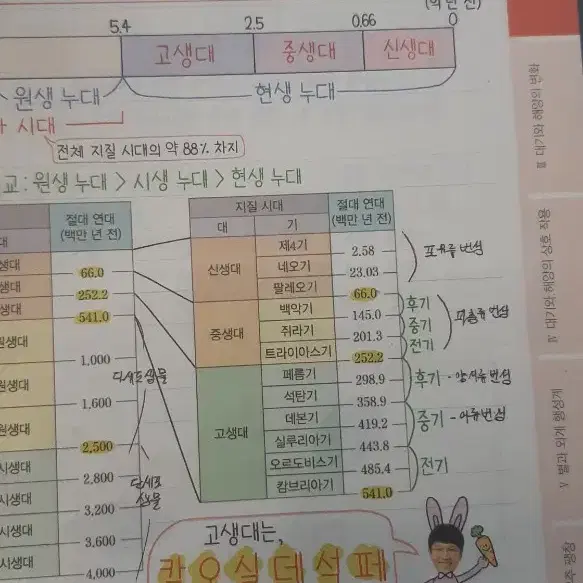 (억 년 전)
5.4 2.5 0.66 0
고생대 중생대 신생대
원생 누대 현생 누대
시대
전체 지질 시대의 약 88% 차지
교 : 원생 누대 > 시생 누대 > 현생 누대
절대 연대
(백만 년 전)
대
생대
66.0
생대
252.2
생대
541.0
원생대
1,000
다세포생물
원생대
1,600
원생대
2,500
시생대
2,800
단세포
생물
시생대
3,200
시생대
3,600
시생대
4,000
지질 시대 절대 연대
(백만 년 전)
대 기
신생대
제4기
2.58
네오기
23.03
팔레오기
66.0
포유류 번성
중생대
백악기
145.0
후기
쥐라기
201.3
중기
트라이아스기
252.2
전기
파충류 번성
고생대
페름기
298.9
석탄기
358.9
후기 - 양서류 번성
데본기
419.2
실루리아기
443.8
중기 - 어류번성
오르도비스기
485.4
캄브리아기
541.0
전기
고생대는,
캄오실데석페
Ⅲ 대기와 해양의 변화
Ⅳ 대기와 해양의 상호 작용
Ⅴ 별과 외계 행성계
주 팽창